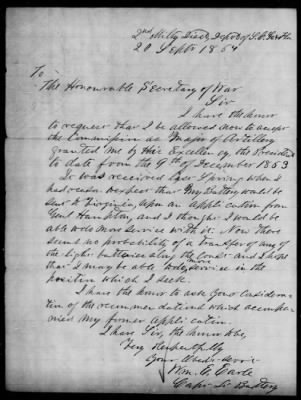 2nd Milty Dist, Dept of S.C. Ga & Fla
20 Septr 1864
To
The Honourable Secretary of War
Sir
I have the honor
to request that I be allowed now to accept
the Commission as Major of Artillery
granted me by His Excellency the President
to date from the 9th of December 1863
It was received last Spring when I
had reason to expect that my Battery would be
sent to Virginia, upon an application from
Genl Hampton, and I thought I would be
able to do more service with it. Now there
seems no probability of a transfer of any of
the light batteries along the coast and I hope
that I may be able to do more service in the
position which I seek.
I have the honor to ask your considera-
tion of the recommendations which accompa-
nied my former application.
I have Sir, the honor to be,
Very Respectfully
Your Obedt Servt
Wm. E. Earle
Capt Lt Battery